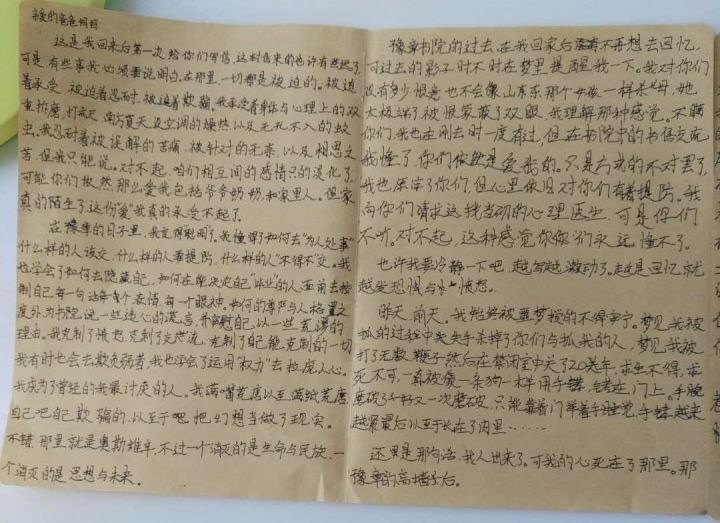 亲爱的爸爸妈妈：
这是我回来后第一次给你们写信，这封信来的也许有些迟了，
可是有些事我必须要说明白。在那里，一切都是被迫的。被迫
着承受，被迫着忍耐，被迫着欺骗，我承受着身体与心理上的双
重折磨，打戒尺，南方夏天没空调的燥热以及无孔不入的蚊
虫。我忍耐着被误解的苦痛，被针对的无奈，以及相思之
苦，但我只能说。对不起，咱们相互间的感情只的淡化了，
可能你们依然那么爱我包括爷爷奶奶，和家里人。但家
真的陌生了，这份“爱”我真的承受不起了。
在豫章的日子里，我变得聪明了。我懂得了如何去“为人处事”
什么样的人该交，什么样的人要提防，什么样的人“不得不”交。我
也学会了如何去隐藏自己，如何在能决定自己“毕业”的人面前去控
制自己每一句话每个表情每一个眼神。如何的尊严与人格置之
度外为书院说一些违心的谎言，并安慰自己以一些荒谬的
理由。我克制了愤怒，克制了交流，克制了自己能克制的一切
我有时也会去欺负弱者，我也学会了运用“权力”去拉拢人心。
我成为了曾经的我最讨厌的人。我满嘴荒唐以至满纸荒唐
自己吧自己欺骗的，以至于吧把幻想当做了现实。
不错，那里就是奥斯维辛，不过一个消灭的是生命与民族，一
个消灭的是思想与未来。
豫章书院的过去，在我回家后没有不再想去回忆，
可过去的影子时不时在梦里提醒我一下。我对你们
没有多少恨意也不会像山东那个女孩一样杀母，她
太极端了被恨蒙蔽了双眼，我理解那种感觉。不瞒
你们，我也在刚去时一度有过，但在书院中的书信交流
我懂了，你们依然是爱我的。只是方式的不对罢了，
我也原宥了你们，但心里依旧对你们有着提防。我
向你们请求过找当切的心理医生，可是你们
不听。对不起，这种感觉你们永远懂不了。
也许我要冷静一下吧，越写越激动了。越是回忆，就
越发恐惧与愤怒。
昨天，前天，我始终被噩梦搅的不得安宁。梦见我被
抓的过程中失手杀掉了你们与抓我的人，梦见我被
打了无数鞭子然后在禁闭室中关了20几年，求生不得，求
死不可，一直被像一条狗一样用手铐，铐在门上。手腕
磨破了好又一次磨破，只能靠着门举着手睡觉，手铐越来
越紧最后以至于长在了肉里……
还是那句话，我人出来了。可我的心死在了那里。那
豫章的高墙子后。